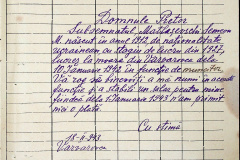 Domnule Pretor
Subsemnatul
M. născut în anul 1912, de naționalitate
ucraineean cu stagiu de lucru din 1927,
lucrez la moara din Vărvăroeea dela
10 Ianuarie 1942 în funcție de muncitor.
Vă rog să binevoiți a mă numi în această
funcție și a stabili un salar pentru mine
findcă dela 1 Ianuarie 1943 n'am primit
nici o plată.
Cu stimă
18-II-943.